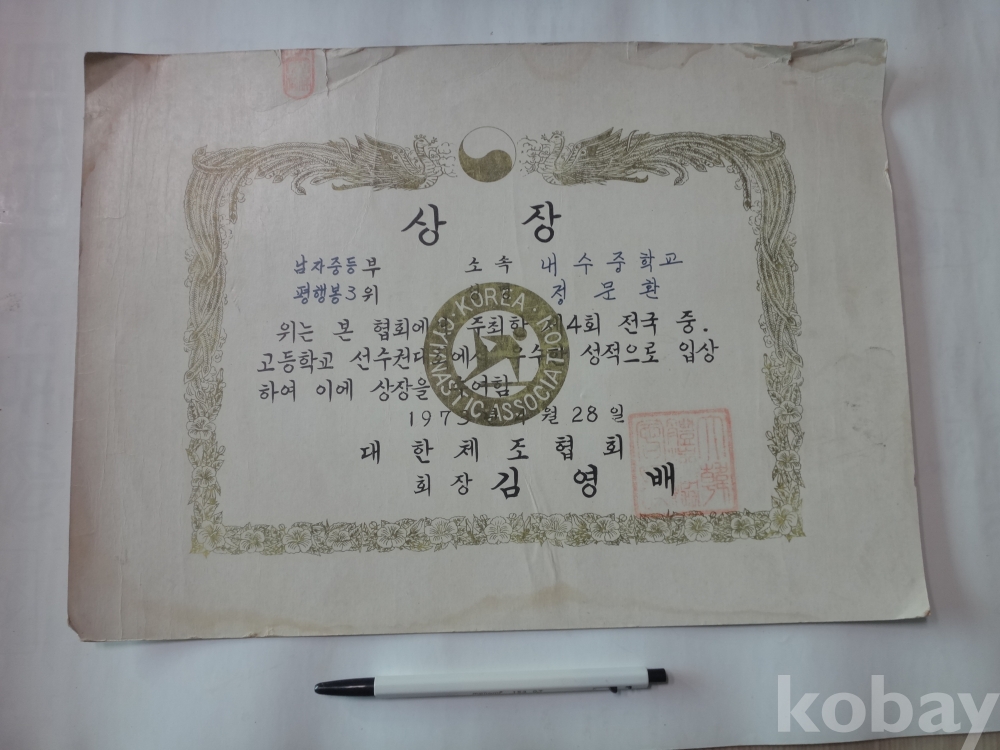 상 장
남자중등부 소속 내수중학교
평행봉3위 정문환
위는 본 협회에서 주최한 제4회 전국 중.
고등학교 선수권대회에서 우수한 성적으로 입상
하여 이에 상장을 수여함
1973년 월 28일
대한체조협회
회장 김영배
KOREA · NOI · GYMNASTIC ASSOCIATION
kobay